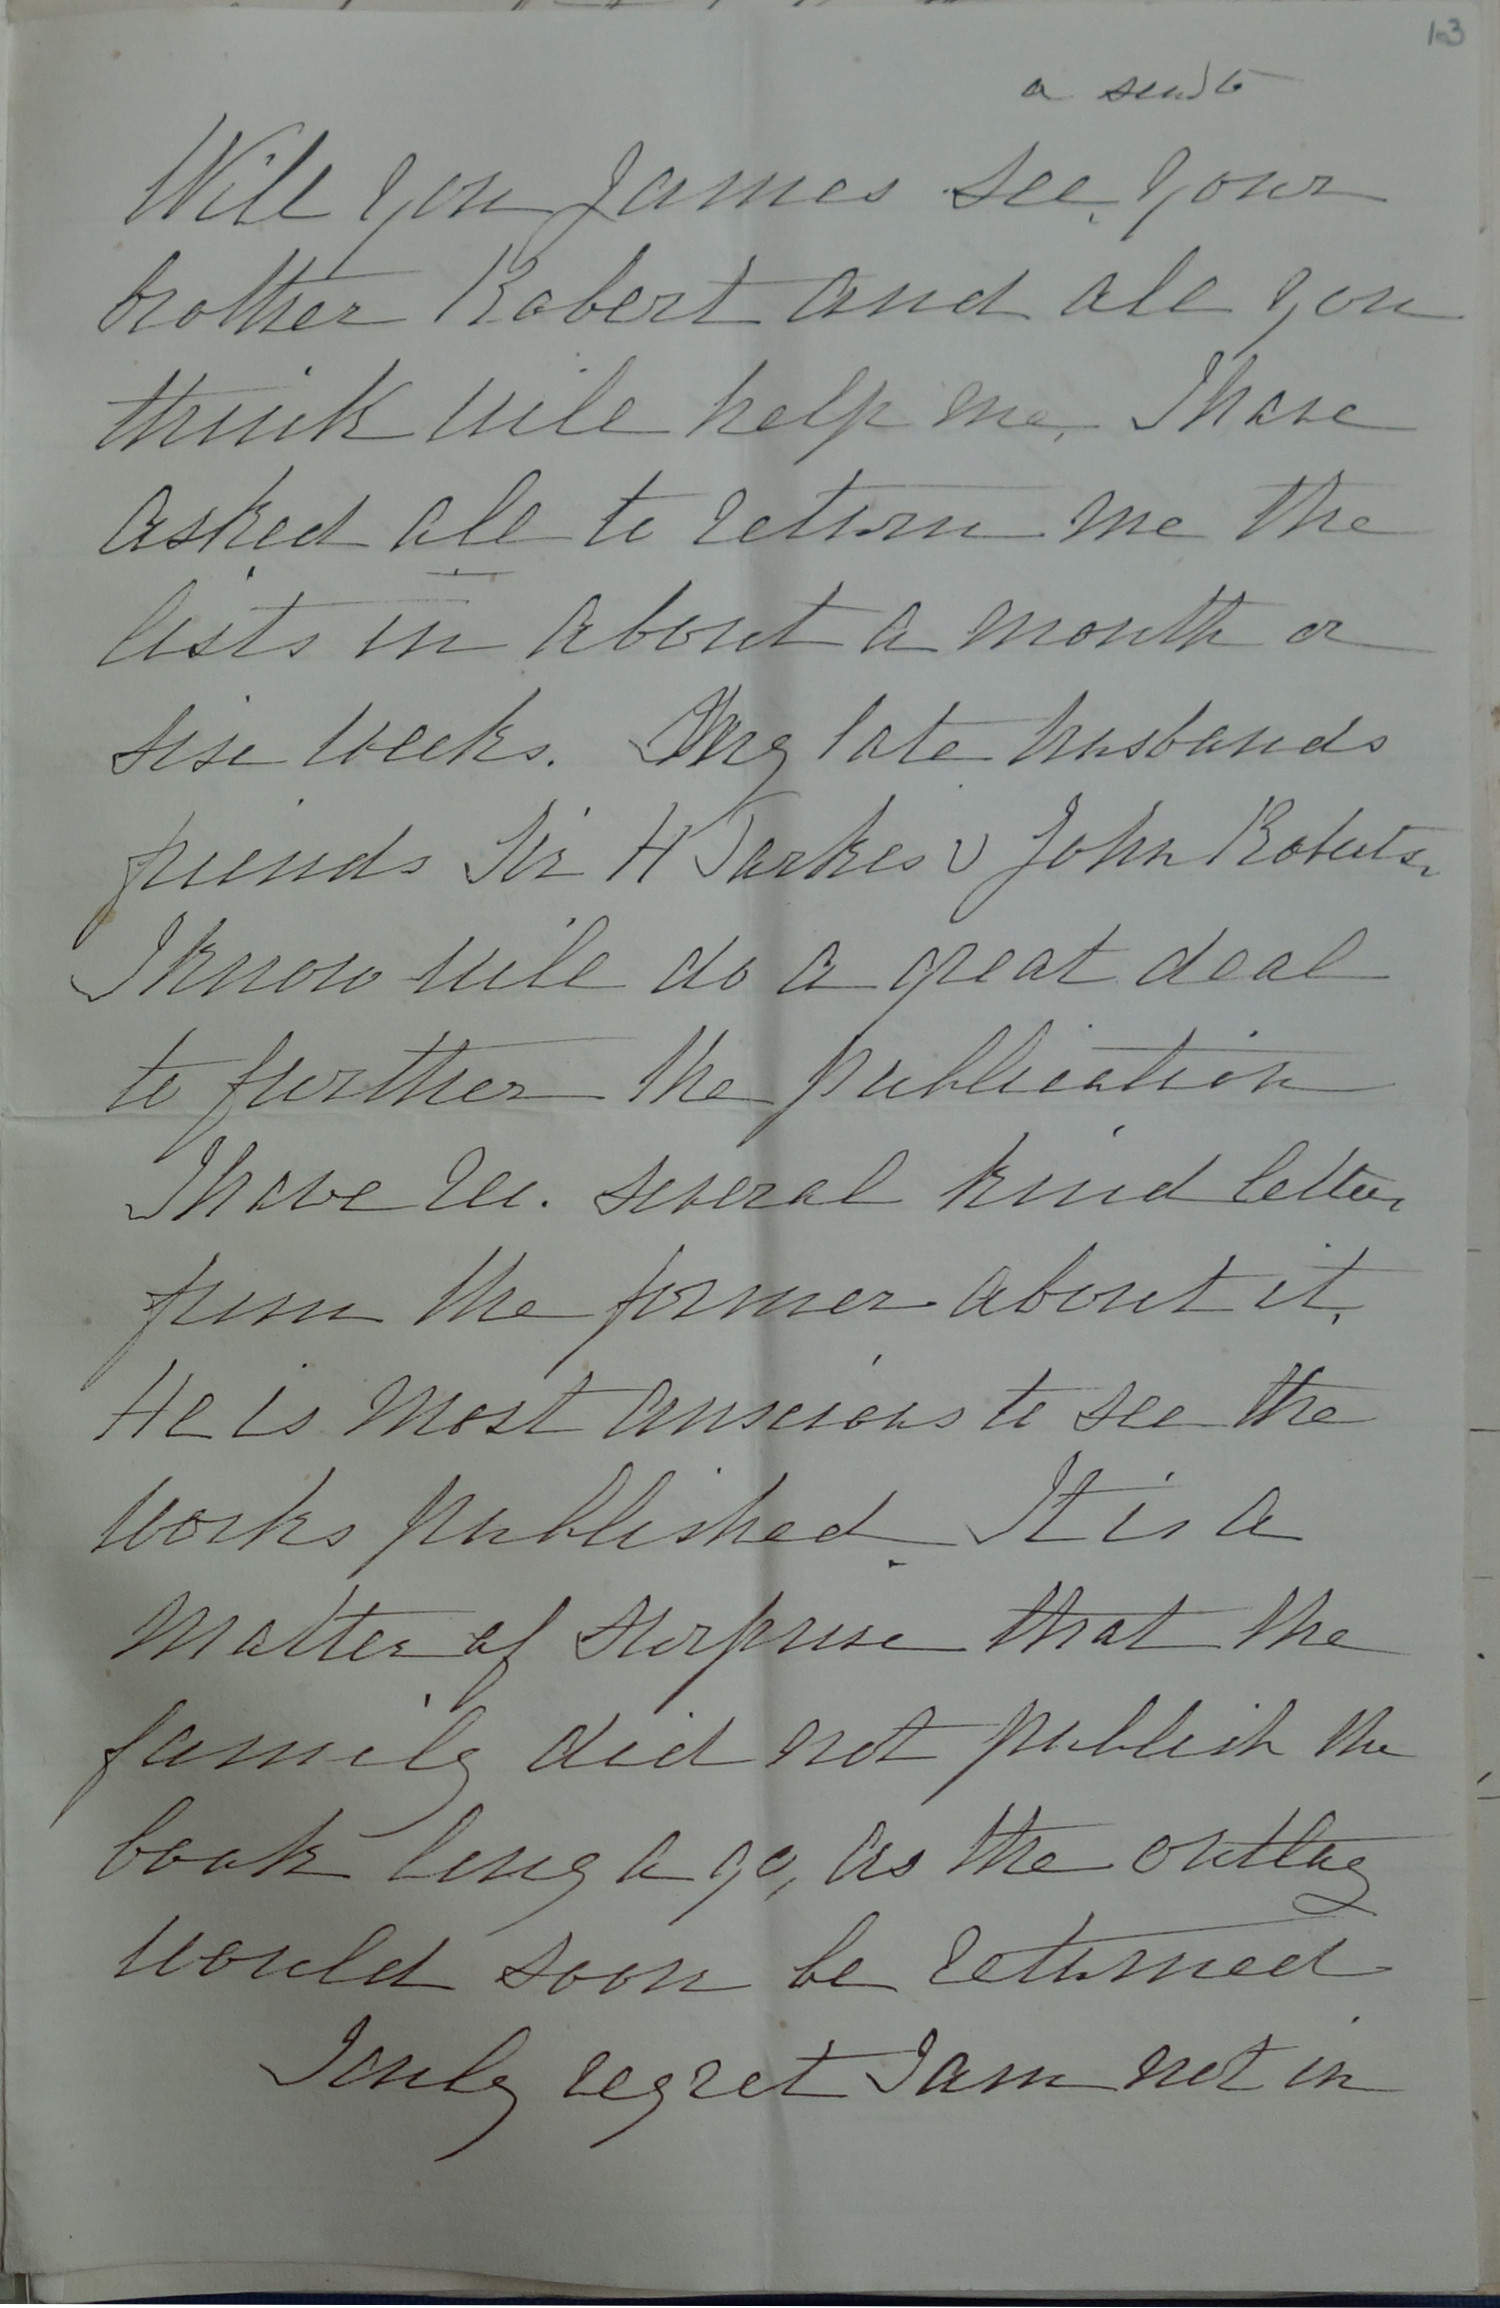 13
a send to
Will you James see your
brother Robert and all you
think will help me. I have
asked all to return me the
lists in about a month or
six weeks. My late husbands
friends Sir H Parkes & John Robertson
I know will do a great deal
to further the publication
I have rec. several kind letters
from the former about it.
He is most anxious to see the
works published. It is a
matter of surprise that the
family did not publish the
book long ago, as the outlay
would soon be returned
I only regret I am not in